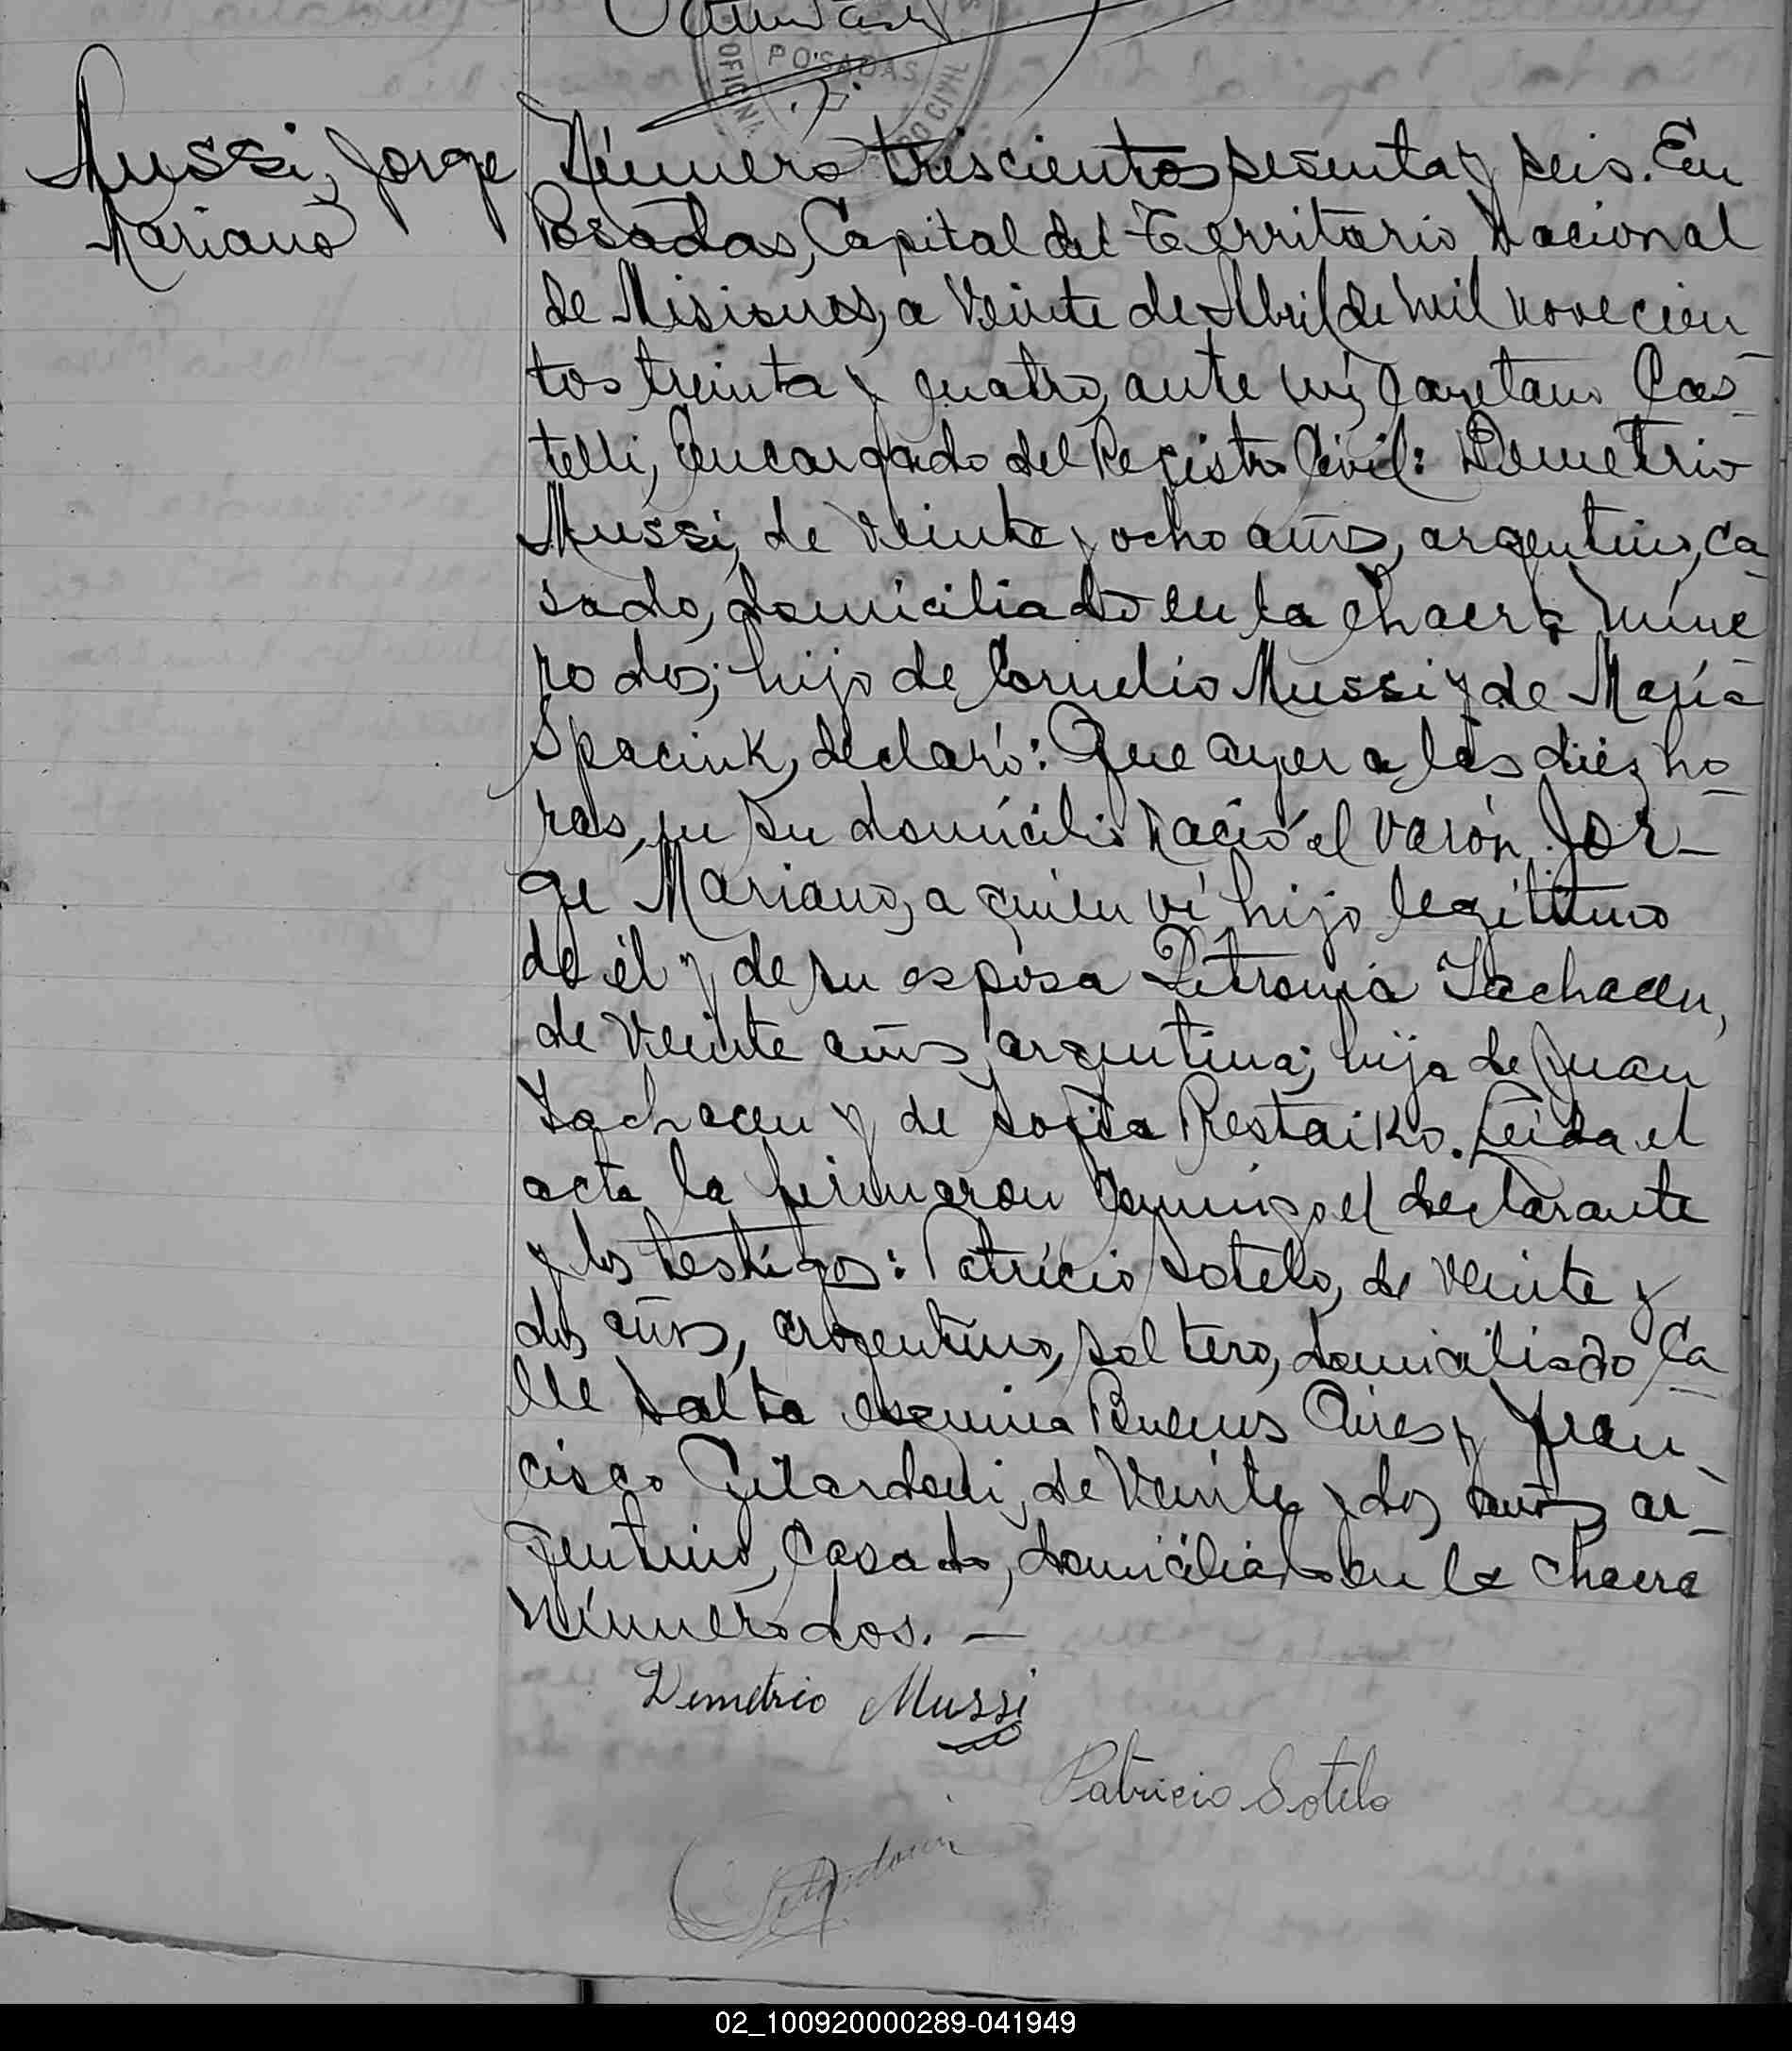 POSADAS
OFICINA
CIVIL
Mussi, Jorge
Mariano
Número trescientos sesenta y seis. En
Posadas, Capital del Territorio Nacional
de Misiones, a veinte de Abril de mil novecien
tos treinta y cuatro, ante mí, Cayetano Cas-
telli, Encargado del Registro Civil: Demetrio
Mussi, de veinte y ocho años, argentino, ca
sado, domiciliado en la chacra núme
ro dos; hijo de Cornelio Mussi y de María
Spacink, declaró: Que ayer a las diez ho
ras, en su domicilio nació el varón Jor-
ge Mariano, a quien ví hijo legítimo
de él y de su esposa Petrona Zachacen,
de veinte años, argentina; hija de Juan
Zachacen y de Sofia Prestaiko. Leida el
acta la firmaron conmigo el declarante
y los testigos: Patricio Sotelo, de veinte y
dos años, argentino, soltero, domiciliado ca
lle Salta esquina Buenos Aires y Fran-
cisco Gilardoni, de veinte y dos años, ar-
gentino, casado, domiciliado en la chacra
número dos. —
Demetrio Mussi
Patricio Sotelo
02_100920000289-041949